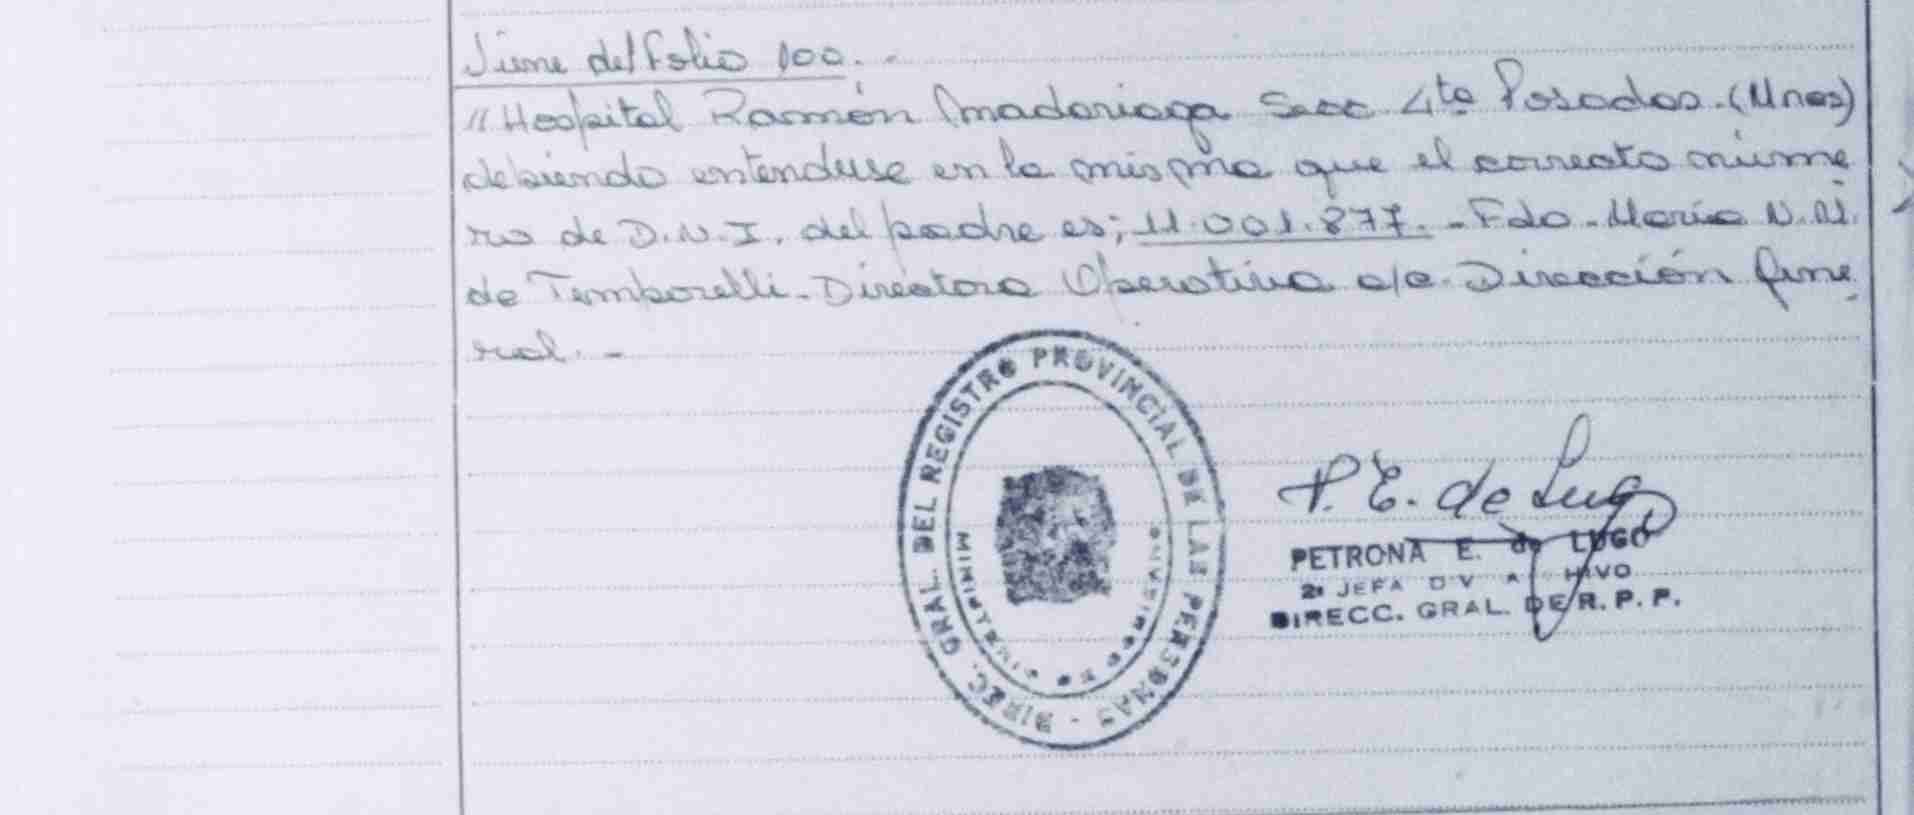 Viene del folio 100.-
// Hospital Ramón Madariaga Secc 4ta Posadas.(Mnes)
debiendo entenderse en la misma que el correcto núme
ro de D.N.I. del padre es; 11.001.877.- Fdo- María N.M.
de Temporelli- Directora Operativa a/c. Dirección Gene
ral.-
DIREC. GRAL. DEL REGISTRO PROVINCIAL DE LAS PERSONAS -
P. E. de Lugo
PETRONA E. de LUGO
2ª JEFA
DIRECC. GRAL. DE R. P. P.